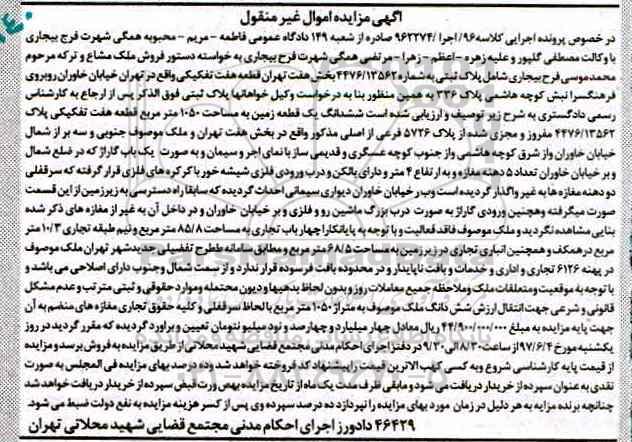 آگهی مزایده اموال غیر منقول
در خصوص پرونده اجرایی کلاسه ۹۶/اجرا/۹۶۲۲۷۴ صادره از شعبه ۱۴۹ دادگاه عمومی فاطمه - مریم - محبوبه همگی شهرت فرج بیجاری
با وکالت مصطفی گلپور و علیه زهره - اعظم - زهرا - مرتضی همگی شهرت فرج بیجاری به خواسته دستور فروش ملک مشاع و ترکه مرحوم
محمد موسی فرج بیجاری شامل پلاک ثبتی به شماره ۴۴۷۶/۱۳۵۶۲ بخش هفت تهران قطعه هفت تفکیکی واقع در تهران خیابان خاوران روبروی
فرهنگسرا نبش کوچه هاشمی پلاک ۳۳۶ به همین منظور بنا به درخواست وکیل خواهانها پلاک ثبتی فوق الذکر پس از ارجاع به کارشناس
رسمی دادگستری به شرح زیر توصیف و ارزیابی شده است ششدانگ یک قطعه زمین به مساحت ۱۰۵۰ متر مربع قطعه هفت تفکیکی پلاک
۴۴۷۶/۱۳۵۶۲ مفروز و مجزی شده از پلاک ۵۷۲۶ فرعی از اصلی مذکور واقع در بخش هفت تهران و ملک موصوف جنوبی و سه بر از شمال
خیابان خاوران و از شرق کوچه هاشمی و از جنوب کوچه عسگری و قدیمی ساز با نمای اجر و سیمان و به صورت یک باب گاراژ که در ضلع شمال
و بر خیابان خاوران تعداد ۵ دهنه مغازه و به ارتفاع ۴ متر و دارای بالکن و درب ورودی فلزی شیشه خور با کرکره های فلزی قرار گرفته که سرقفلی
دو دهنه مغازه ها به غیر واگذار گردیده است و بر خیابان خاوران دیواری سیمانی احداث گردیده که سابقا راه دسترسی به زیرزمین از این قسمت
صورت میگرفته وهچنین ورودی گاراژ به صورت درب بزرگ ماشین رو و فلزی و بر خیابان خاوران و در داخل آن به غیر از مغازه های ذکر شده
بنایی مشاهده نگردید و ملک موصوف فاقد فعالیت و با توجه به پایانکار چهار باب تجاری به مساحت ۸۵/۸ متر مربع و نیم طبقه تجاری ۱۰/۳ متر
مربع در همکف و همچنین انباری تجاری در زیرزمین به مساحت ۶۸/۵ متر مربع و مطابق سامانه ططرح تفصیلی جدید شهر تهران ملک موصوف
در پهنه ۶۱۲۶ تجاری و اداری و خدمات و بافت ناپایدار و در محدوده بافت فرسوده قرار ندارد و از سمت شمال و جنوب دارای اصلاحی می باشد و
با توجه به موقعیت و متعلقات ملک و ملاحظه جمیع معاملات روز و بدون لحاظ بدهیها و دیون محتمله و موارد حقوقی و ثبتی مترتب و عدم مشکل
قانونی و شرعی جهت انتقال ارزش شش دانگ ملک موصوف به متراژ ۱۰۵۰ متر مربع با لحاظ سرقفلی و کلیه حقوق تجاری مغازه های منضم به آن
جهت پایه مزایده به مبلغ ۴۴/۹۰۰/۰۰۰/۰۰۰ ریال معادل چهار میلیارد و چهارصد و نود میلیو نتومان تعیین و براورد گردیده که مقرر گردید در روز
یکشنبه مورخ ۹۷/۶/۴ از ساعت ۸/۳۰ الی ۹/۳۰ در دفتر اجرای احکام مدنی مجتمع قضایی شهید محلاتی از طریق مزایده به فروش برسد و مزایده
از قیمت پایه کارشناسی شروع و به کسی کهب الاترین قیمت را پیشنهاد کند فروخته خواهد شد و ده درصد بهای مزایده فی المجلس به صورت
نقدی به عنوان سپرده از خریدار دریافت می شود و مابقی ظرف مدت یک ماه از تاریخ مزایده بهص ورت قبض سپرده از خریدار دریافت خواهد شد
چنانچه برنده مزایه به هر دلیل در زمان مورد بهای مزایده را نپردازد ده درصد سپرده وی پس از کسر هزینه مزایده به نفع دولت ضبط می شود.
۴۶۴۲۹ دادورز اجرای احکام مدنی مجتمع قضایی شهید محلاتی تهران